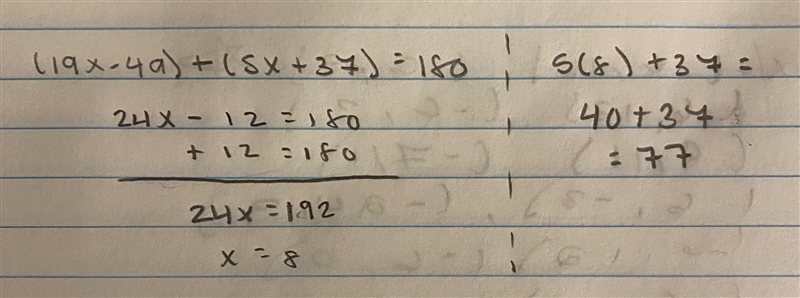 (19x-49)+(5x+37)=180
24x - 12 = 180
+ 12 = 180
24x=192
x = 8
5(8)+37=
40+37
=77